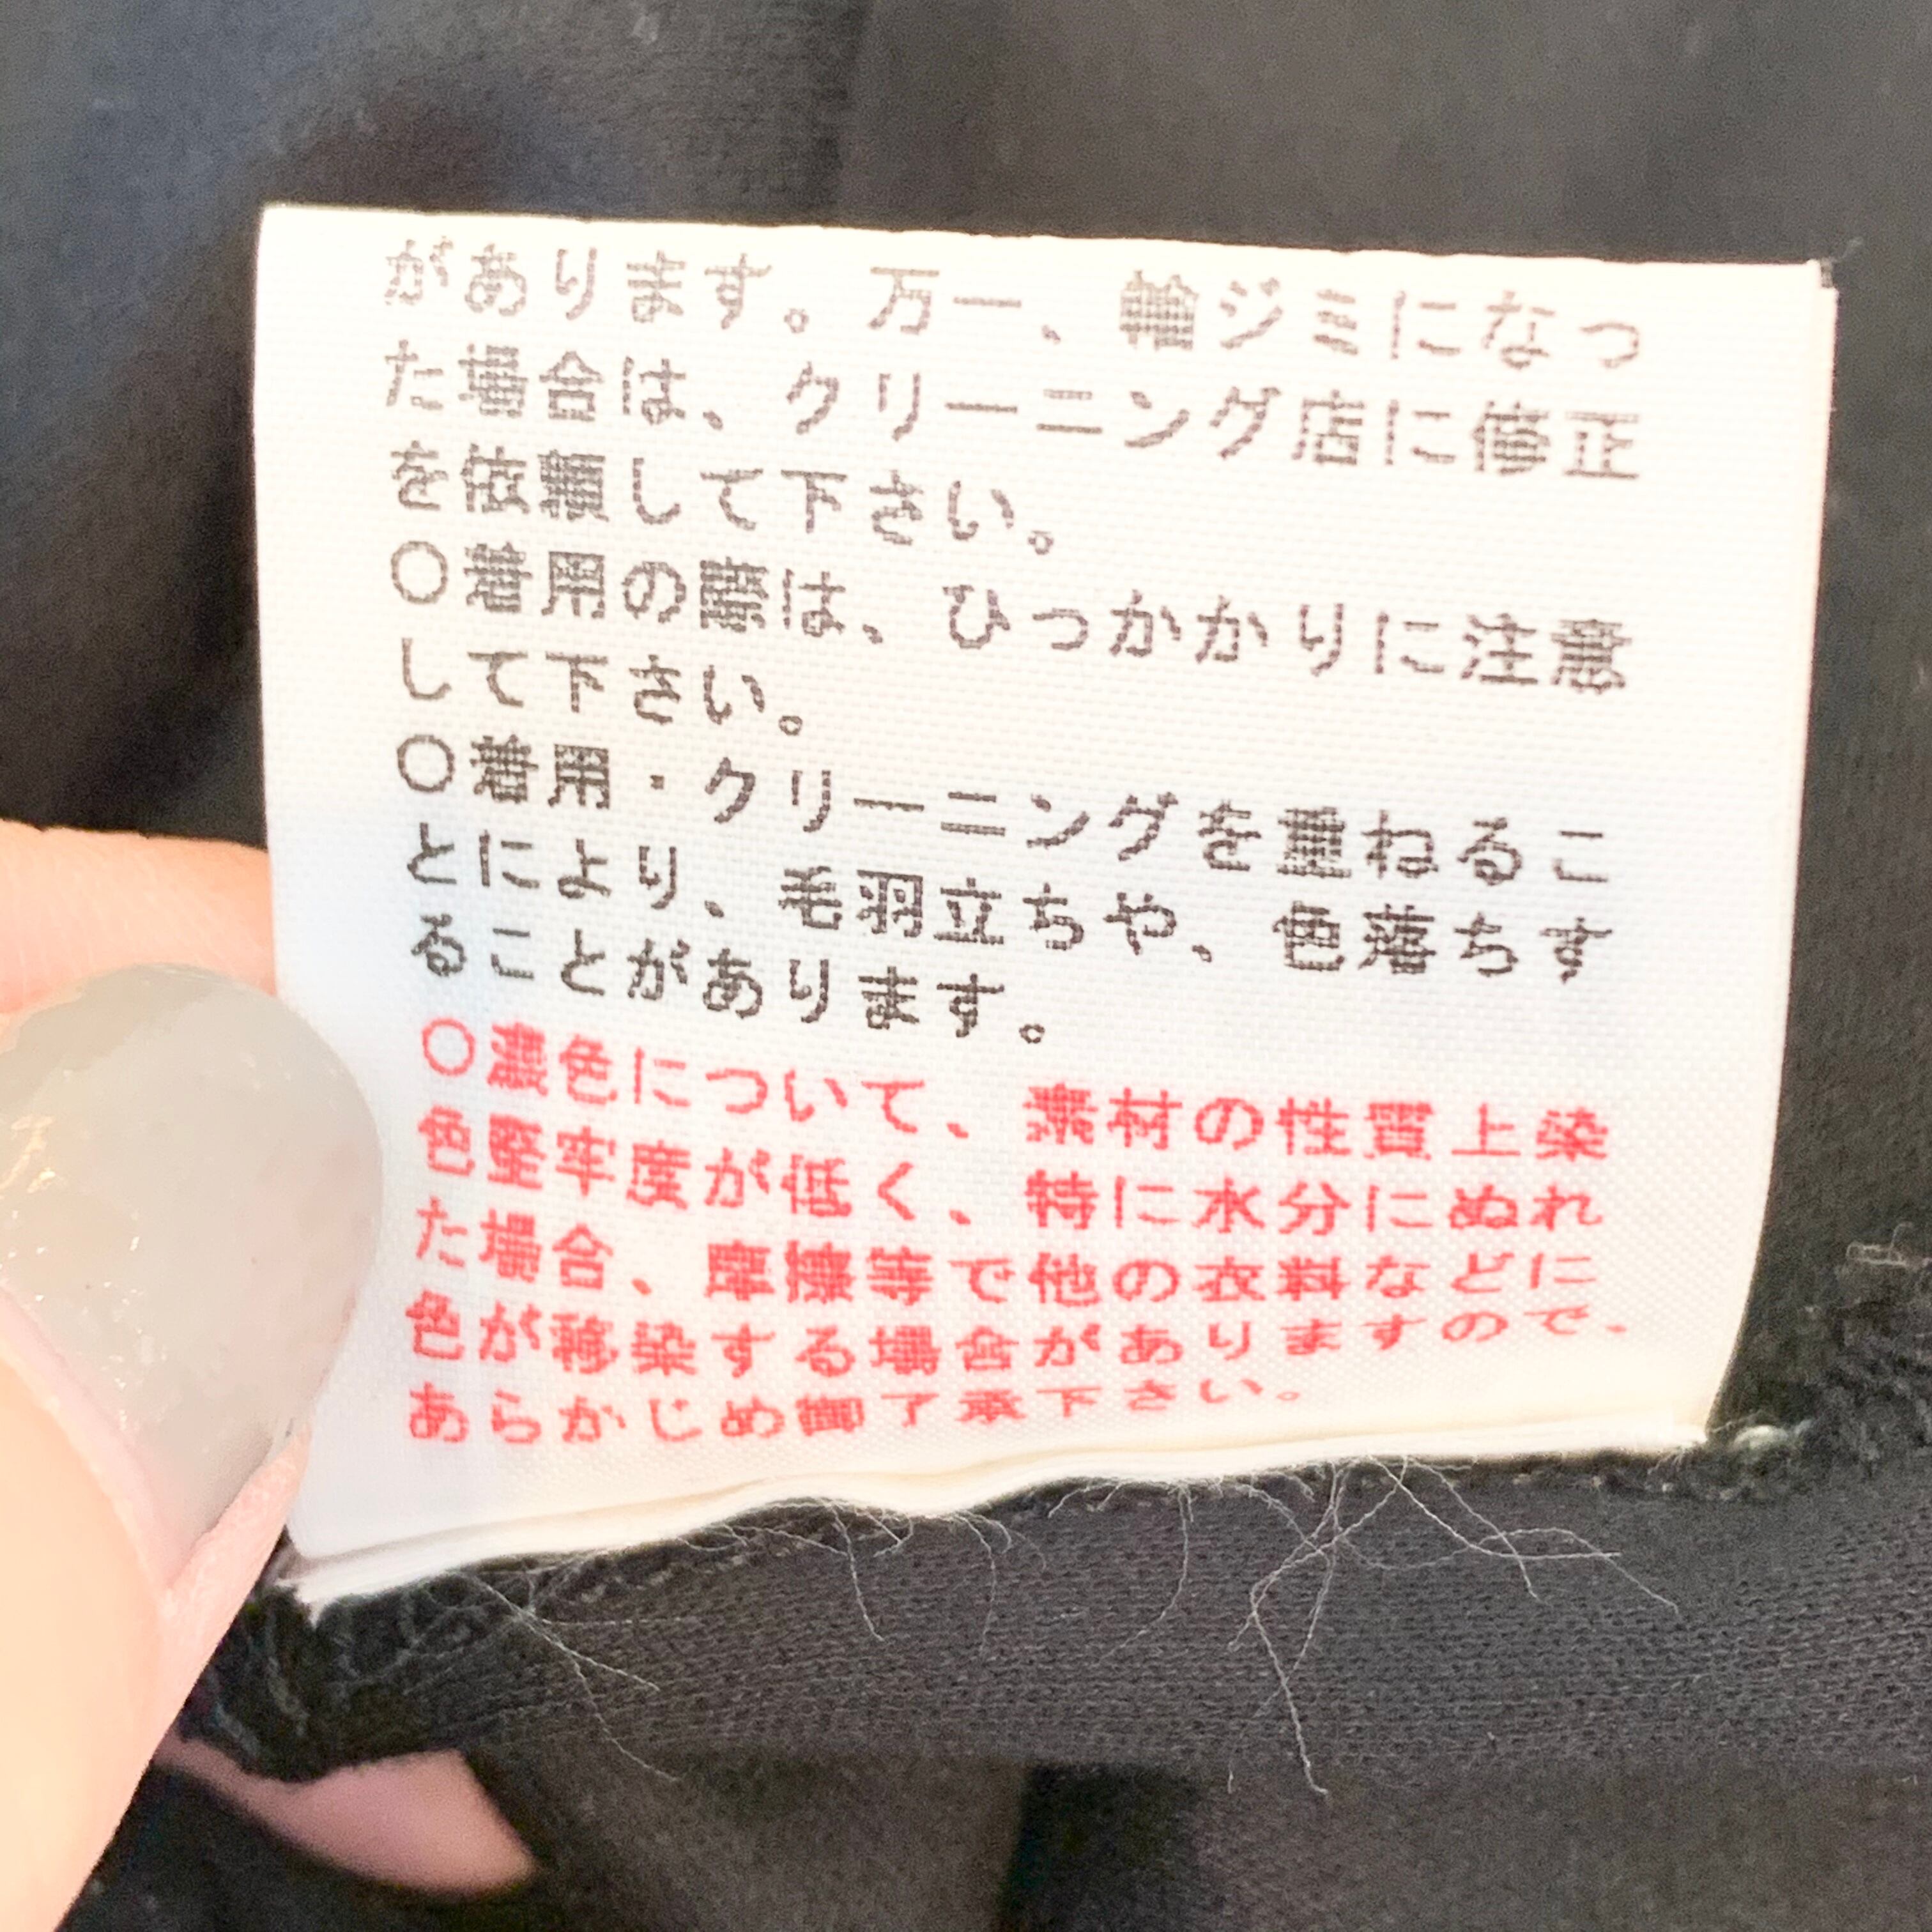 があります。万一、輪ジミになっ
た場合は、クリーニング店に修正
を依頼して下さい。
○着用の際は、ひっかかりに注意
して下さい。
○着用・クリーニングを重ねるこ
とにより、毛羽立ちや、色落ちす
ることがあります。
○濃色について、素材の性質上染
色堅牢度が低く、特に水分にぬれ
た場合、摩擦等で他の衣料などに
色が移染する場合がありますので、
あらかじめ御了承下さい。